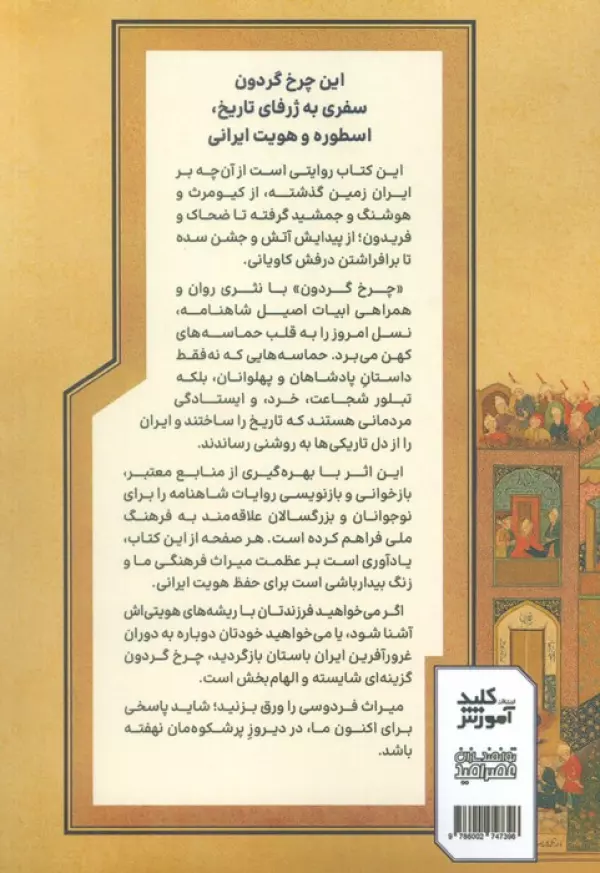 این چرخ گردون
سفری به ژرفای تاریخ،
اسطوره و هویت ایرانی
این کتاب روایتی است از آن‌چه بر
ایران زمین گذشته، از کیومرث و
هوشنگ و جمشید گرفته تا ضحاک و
فریدون؛ از پیدایش آتش و جشن سده
تا برافراشتن درفش کاویانی.
«چرخ گردون» با نثری روان و
همراهی ابیات اصیل شاهنامه،
نسل امروز را به قلب حماسه‌های
کهن می‌برد. حماسه‌هایی که نه‌فقط
داستانِ پادشاهان و پهلوانان، بلکه
تبلور شجاعت، خرد، و ایستادگی
مردمانی هستند که تاریخ را ساختند و ایران
را از دل تاریکی‌ها به روشنی رساندند.
این اثر با بهره‌گیری از منابع معتبر،
بازخوانی و بازنویسی روایات شاهنامه را برای
نوجوانان و بزرگسالان علاقه‌مند به فرهنگ
ملی فراهم کرده است. هر صفحه از این کتاب،
یادآوری است بر عظمت میراث فرهنگی ما و
زنگ بیدارباشی است برای حفظ هویت ایرانی.
اگر می‌خواهید فرزندتان با ریشه‌های هویتی‌اش
آشنا شود، یا می‌خواهید خودتان دوباره به دوران
غرورآفرین ایران باستان بازگردید، چرخ گردون
گزینه‌ای شایسته و الهام‌بخش است.
میراث فردوسی را ورق بزنید؛ شاید پاسخی
برای اکنون ما، در دیروزِ پرشکوه‌مان نهفته
باشد.
انتشارات
کلید
آموزش
9 786002 747396